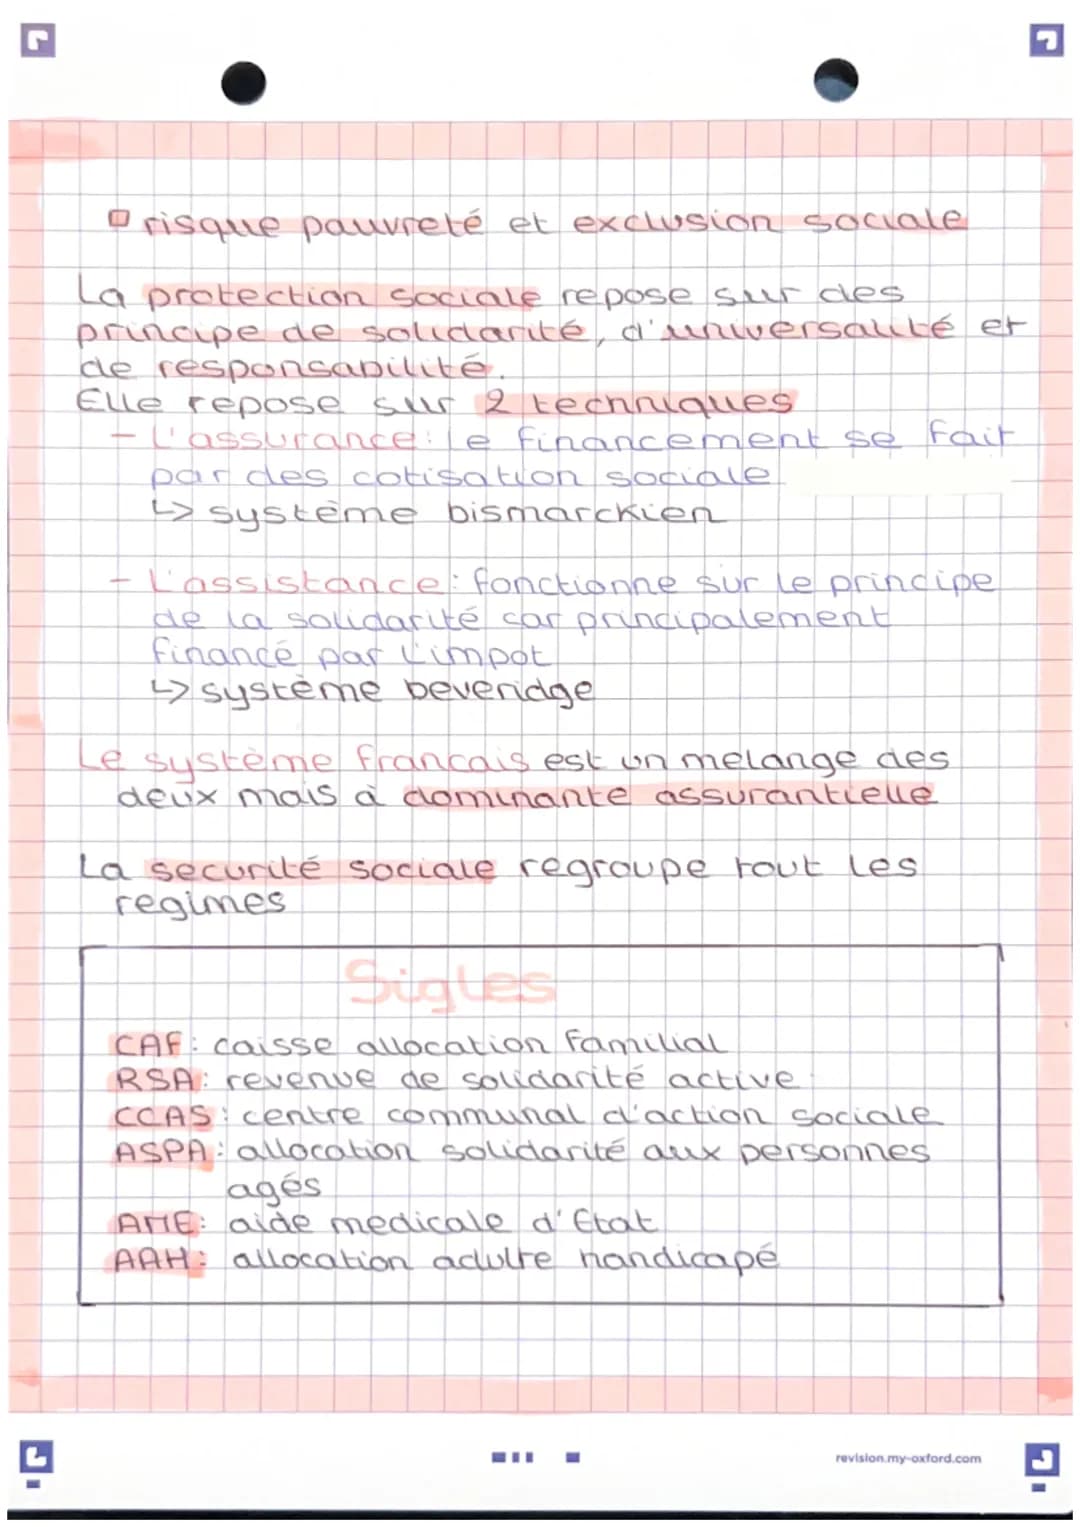 risque pauvreté et exclusion sociale
La protection sociale repose sur des
principe de solidarité, d'universalité et
de responsabilité.
Elle repose sur 2 techniques
- L'assurance: le financement se fait
par des cotisation sociale
↳ système bismarckien
- L'assistance: fonctionne sur le principe
de la solidarité car principalement
financé par l'impot
↳ système beveridge
Le système francais est un melange des
deux mais à dominante assurantielle
La securité sociale regroupe tout les
regimes
Sigles
CAF: caisse allocation familial
RSA: revenue de solidarité active
CCAS: centre communal d'action sociale
ASPA: allocation solidarité aux personnes
agés
AME: aide medicale d'Etat
AAH: allocation adulte handicapé
revision.my-oxford.com